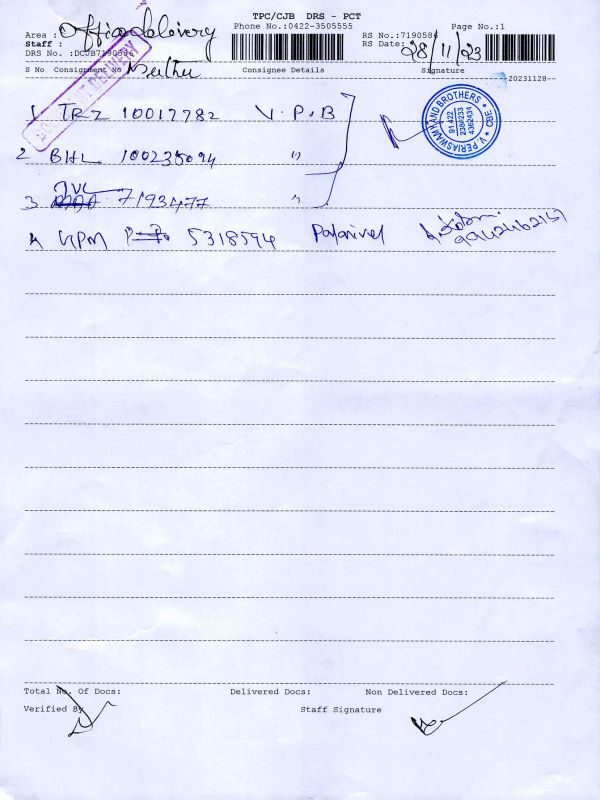 TPC/CJB DRS - PCT
Phone No.:0422-3505555
Page No.:1
Area : Office delivery
RS No.:7190586
Staff :
RS Date: 28/11/23
DRS No. :DCJB7190586
S No Consignment No Consignee Details Signature
20231128
1 TRZ 10017782 V.P.B
2 BHL 100235094 "
3 JVL 7193477 "
4 UPM 5318594 Palanivel 9942462151
V. PERIASWAMY AND BROTHERS * CBE *
Total No. Of Docs: Delivered Docs: Non Delivered Docs:
Verified By Staff Signature